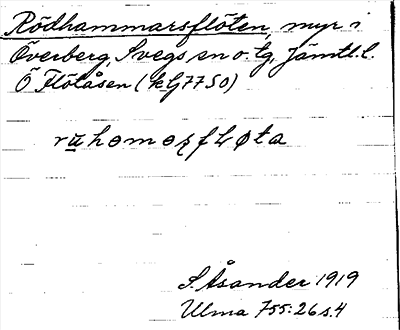 Rödhammarsflöten, myr i
Överberg, Svegs sn o. tg, Jämtl. l.
Ö Flötåsen (kG7750)
S. Åsander 1919
Ulma 755:26 s. 4